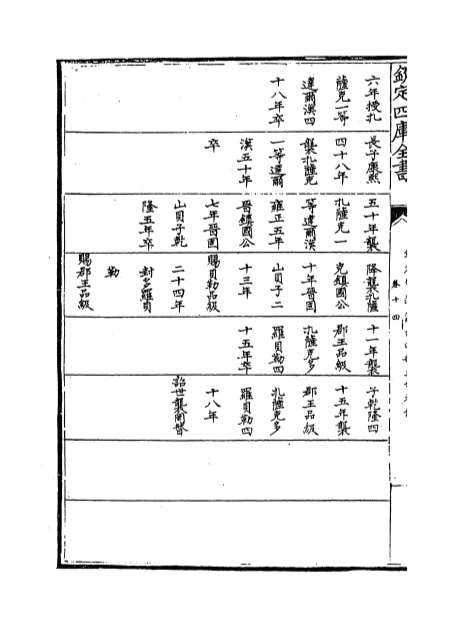 欽定四庫全書
卷十四
六年授扎
薩克一等
達爾漢四
十八年卒
長子康熙
四十八年
襲扎薩克
一等達爾
漢五十年
卒
五十年襲
扎薩克一
等達爾漢
雍正五年
晉鎮國公
七年晉固
山貝子乾
隆五年卒
降襲扎薩
克鎮國公
十年晉固
山貝子二
十三年
賜貝勒品級
二十四年
封多羅貝
勒
賜郡王品級
十一年襲
郡王品級
扎薩克多
羅貝勒四
十五年卒
子乾隆四
十五年襲
郡王品級
扎薩克多
羅貝勒四
十八年
詔世襲罔替